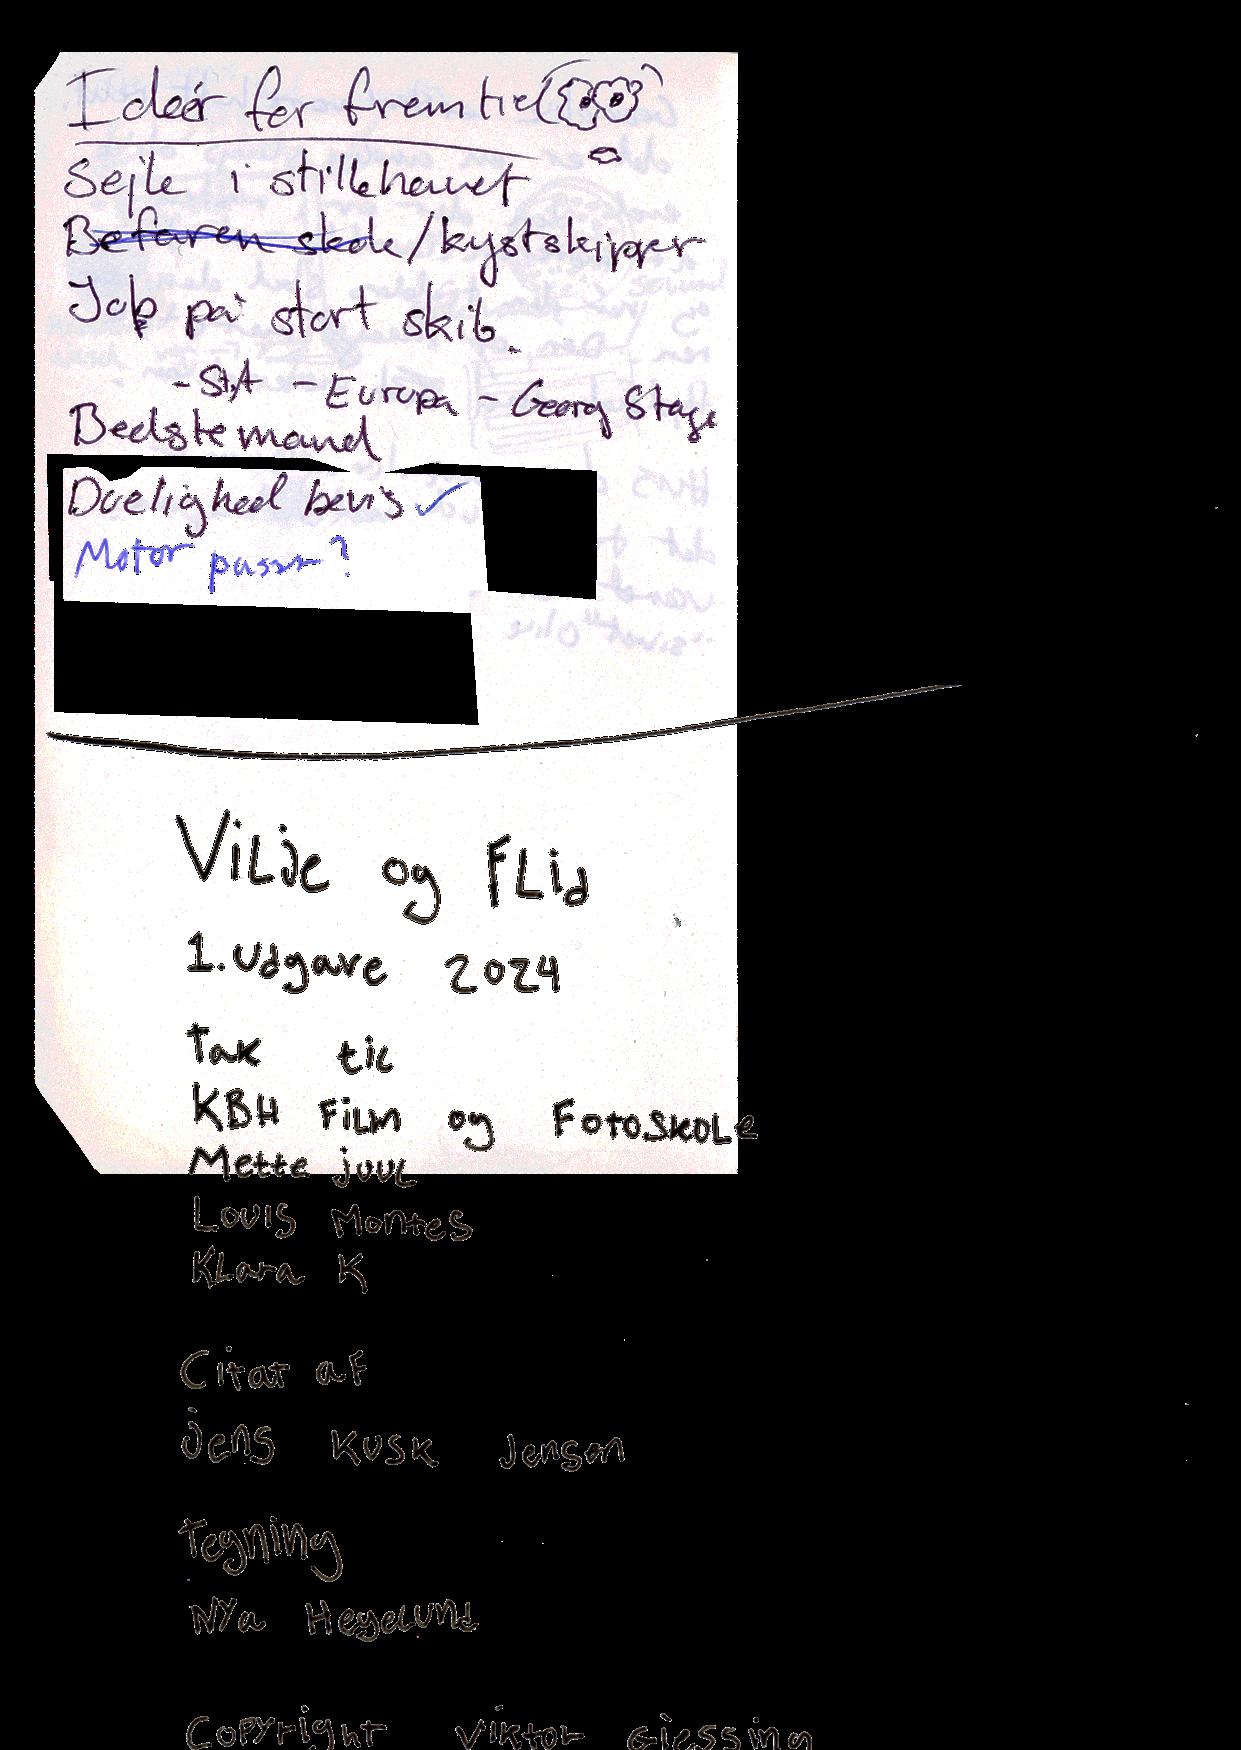 Ideér for fremtid
Sejle i stillehavet
Befaren skole/kystskipper
Job på stort skib.
- StA - Europa - Georg Stage
Bedstemand
Duelighed bevis ✓
Motor passer?
Vilje og Flid
1. udgave 2024
Tak til
KBH Film og Fotoskole
Mette juul
Louis Montes
Klara K
Citat af
jens Kusk Jensen
Tegning
Nya Hegelund
Copyright Viktor Giessing